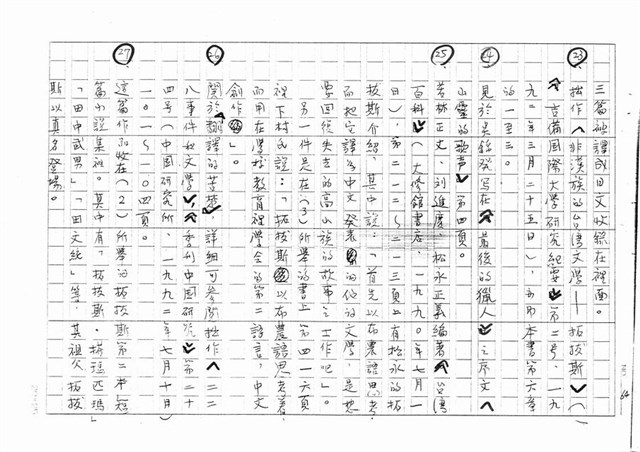 三篇被譯成日文收錄在裡面。
㉓ 拙作︿非漢族的台灣文學——拓拔斯﹀(︿吉備國際大學研究紀要﹀第二號、一九九二年三月二十五日),亦即本書第六章的一至三。
㉔ 見於吳錦發寫在︿最後的獵人﹀之序文︿山靈的歌聲﹀第四頁。
㉕ 若林正丈、刘進慶、松永正義編著︿台灣百科﹀(大修館書店、一九九〇年七月一日),第二一二~二一三頁上有松永的拓拔斯介紹,其中說:「首先以布農語思考,而把它譯為中文發表的他的文學,是想要回復失去的高山族的故事之士作吧」。
另一件是在(3)所舉的書上第四一六頁裡下村氏說:「拓拔斯以布農語思考著,而用在學校教育裡學会的第二語言,中文創作」。
㉖ 關於翻譯的苦楚,詳細可參閱拙作︿二二八事件如文學﹀︿季刊中国研究﹀第二十四号(中国研究所、一九九二年七月十日)一〇一~一〇四頁。
㉗ 這篇作品收在(2)所舉的拓拔斯第二本短篇小說集裡。其中有「拓拔斯·搭瑪匹瑪」「田中武男」「田文統」等,其祖父拓拔斯以真名登場。
64